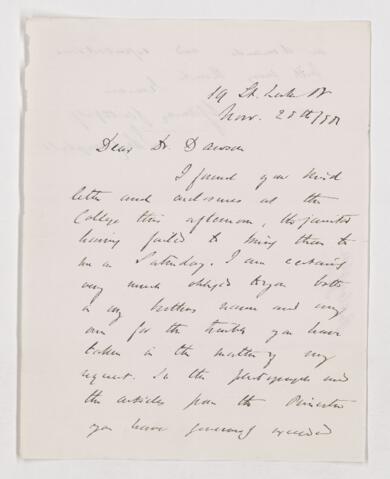 19 St. Luke St
Nov. 28th/81
Dear Dr. Dawson
I found your kind
letter and enclosures at the
College this afternoon, the janitor
having failed to bring them to
me on Saturday. I am certainly
very much obliged to you both
in my brothers name and my
own for the trouble you have
taken in the matter of my
request. In the photographs and
the articles from the
you have generously exceeded